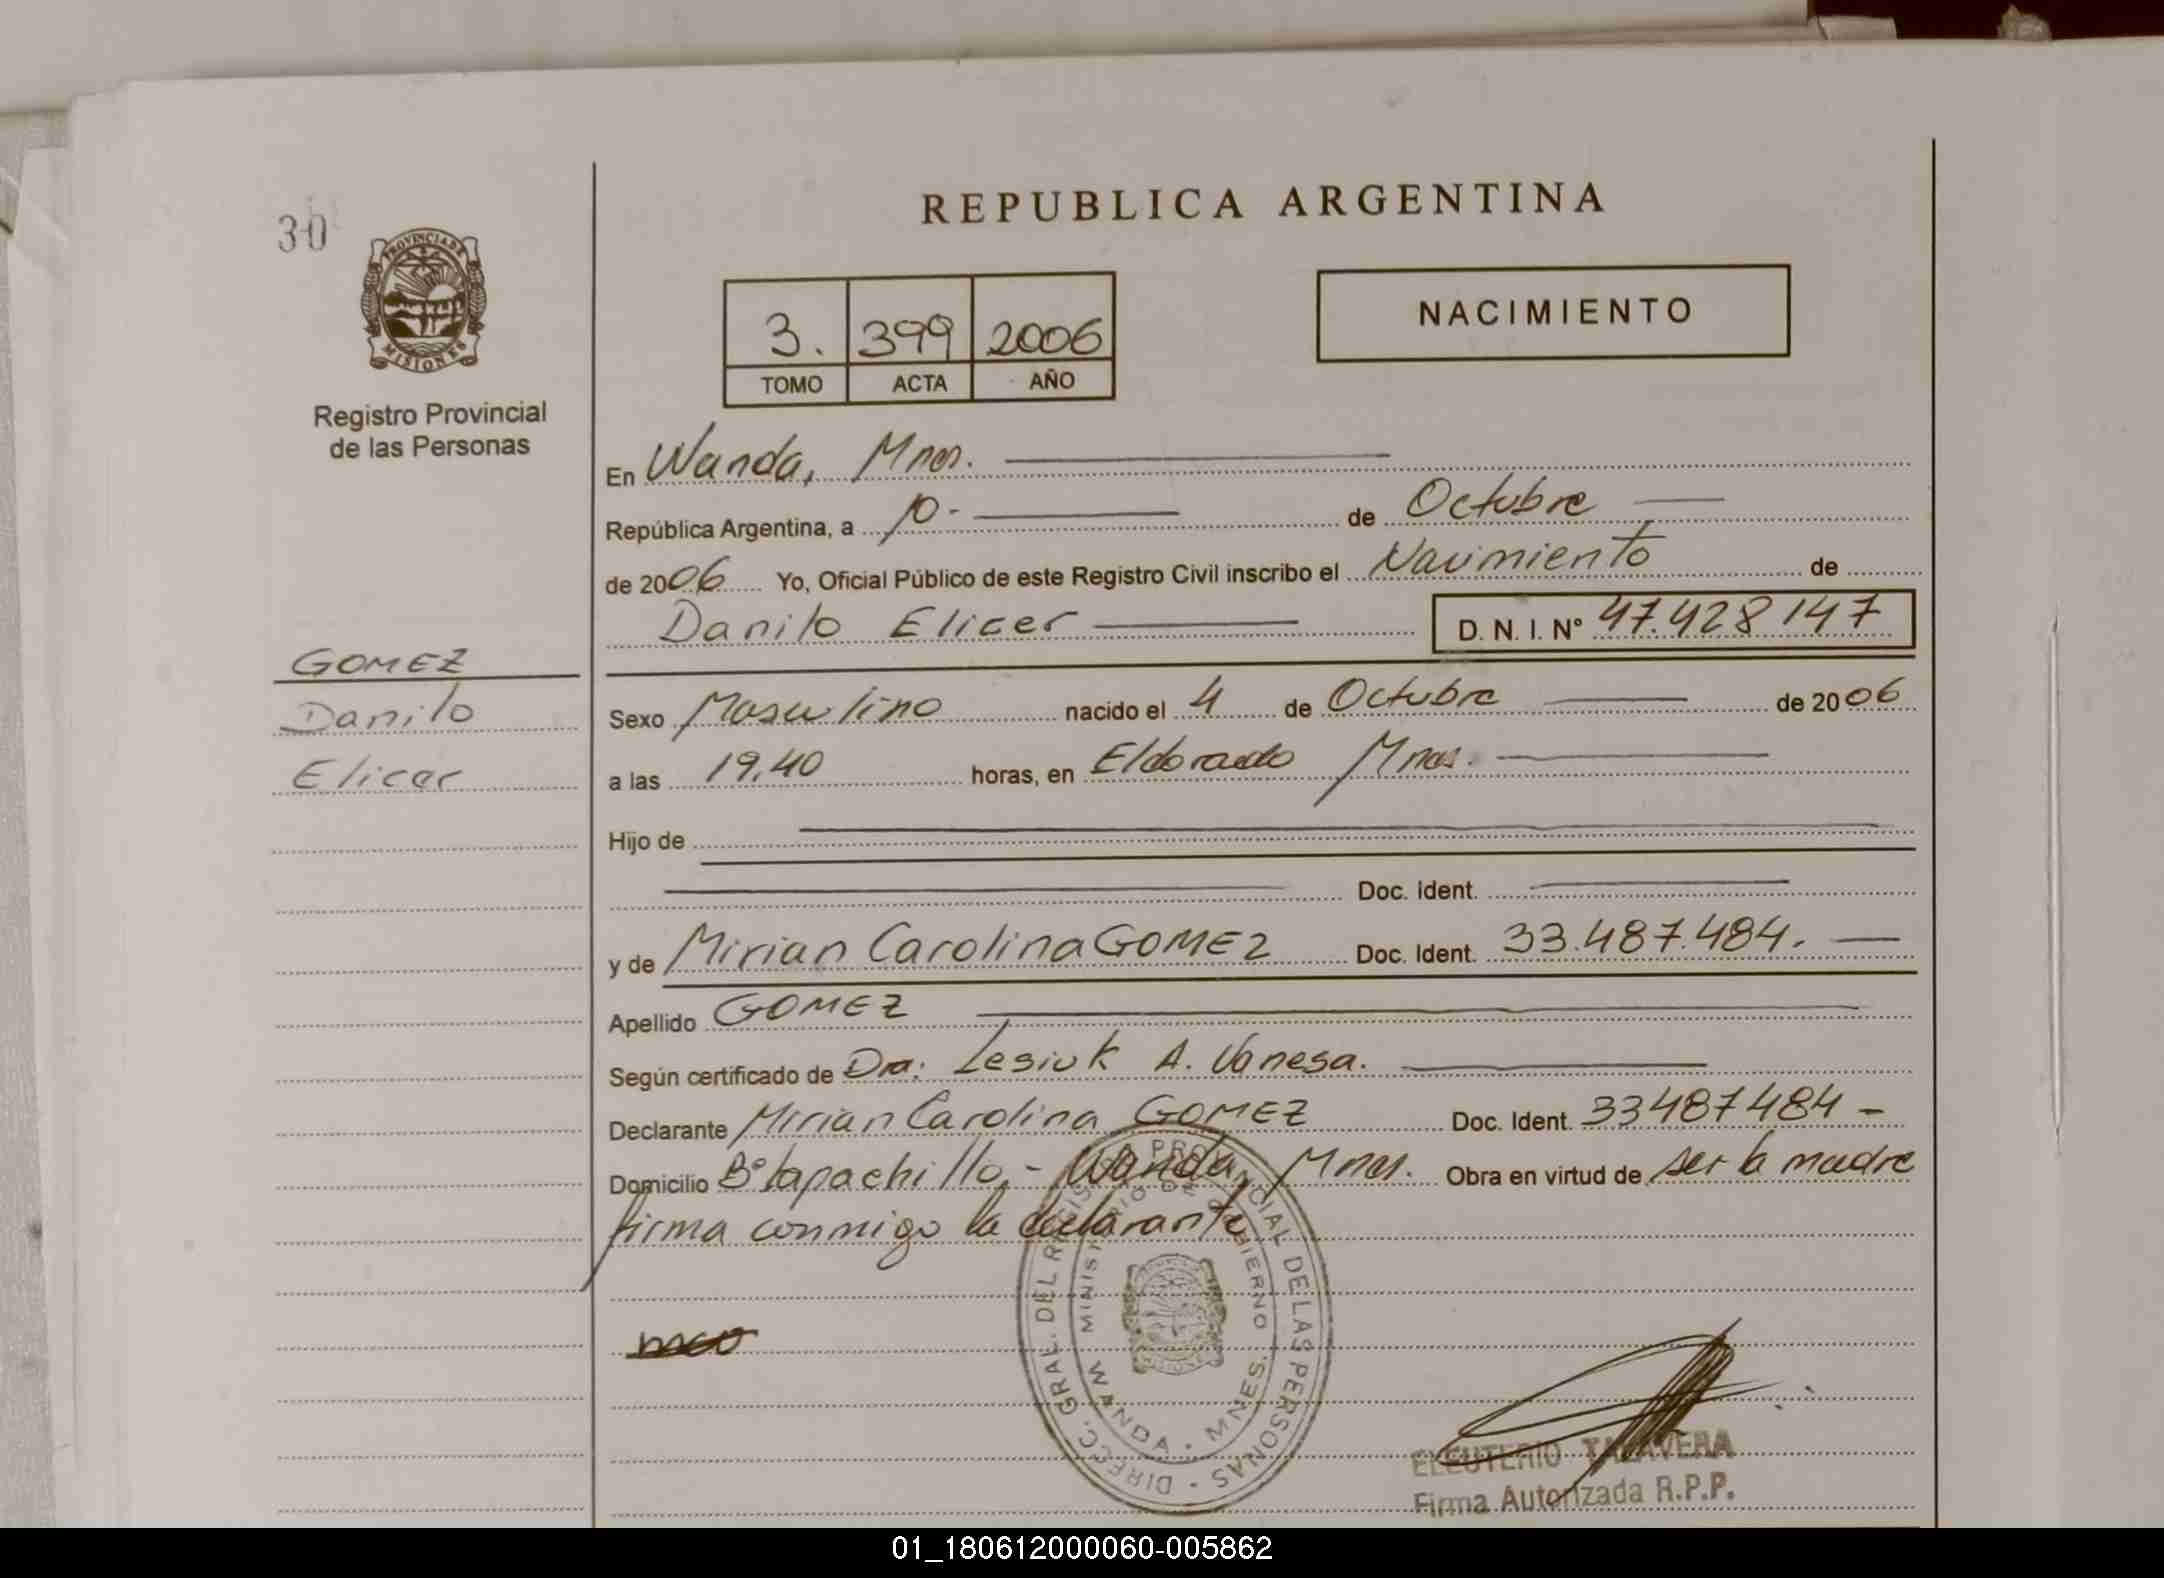 30
PROVINCIA DE
MISIONES
Registro Provincial
de las Personas
REPUBLICA ARGENTINA
3. 399 2006
TOMO ACTA AÑO
NACIMIENTO
En Wanda, Mnes.
República Argentina, a 10- de Octubre
de 2006 Yo, Oficial Público de este Registro Civil inscribo el Nacimiento de
Danilo Elicer D. N. I. N° 47.428147
GOMEZ
Danilo
Elicer
Sexo Masculino nacido el 4 de Octubre de 2006
a las 19.40 horas, en Eldorado Mnes.
Hijo de
Doc. ident.
y de Mirian Carolina GOMEZ Doc. Ident. 33.487.484.
Apellido GOMEZ
Según certificado de Dra: Lesiuk A. Vanesa.
Declarante Mirian Carolina GOMEZ Doc. Ident. 33487484-
Domicilio B° Lapachillo,- Wanda, Mnes. Obra en virtud de ser la madre
firma conmigo la declarante
DIRECC. GRAL. DEL REGISTRO PROVINCIAL DE LAS PERSONAS
MINISTERIO DE GOBIERNO
WANDA - MNES.
MISIONES
ELEUTERIO TALAVERA
Firma Autorizada R.P.P.
01_180612000060-005862